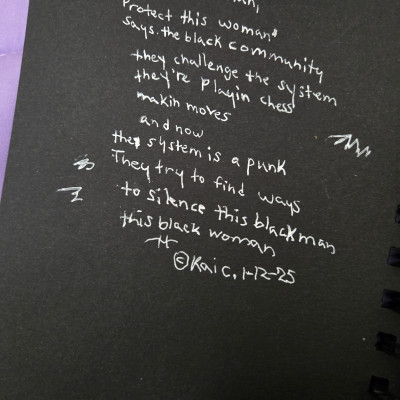 Protect this woman"
says. the black community
they challenge the system
they're playin chess
makin moves
and now
the system is a punk
They try to find ways
to silence this blackman
this black woman
©Kai C. 1-12-25